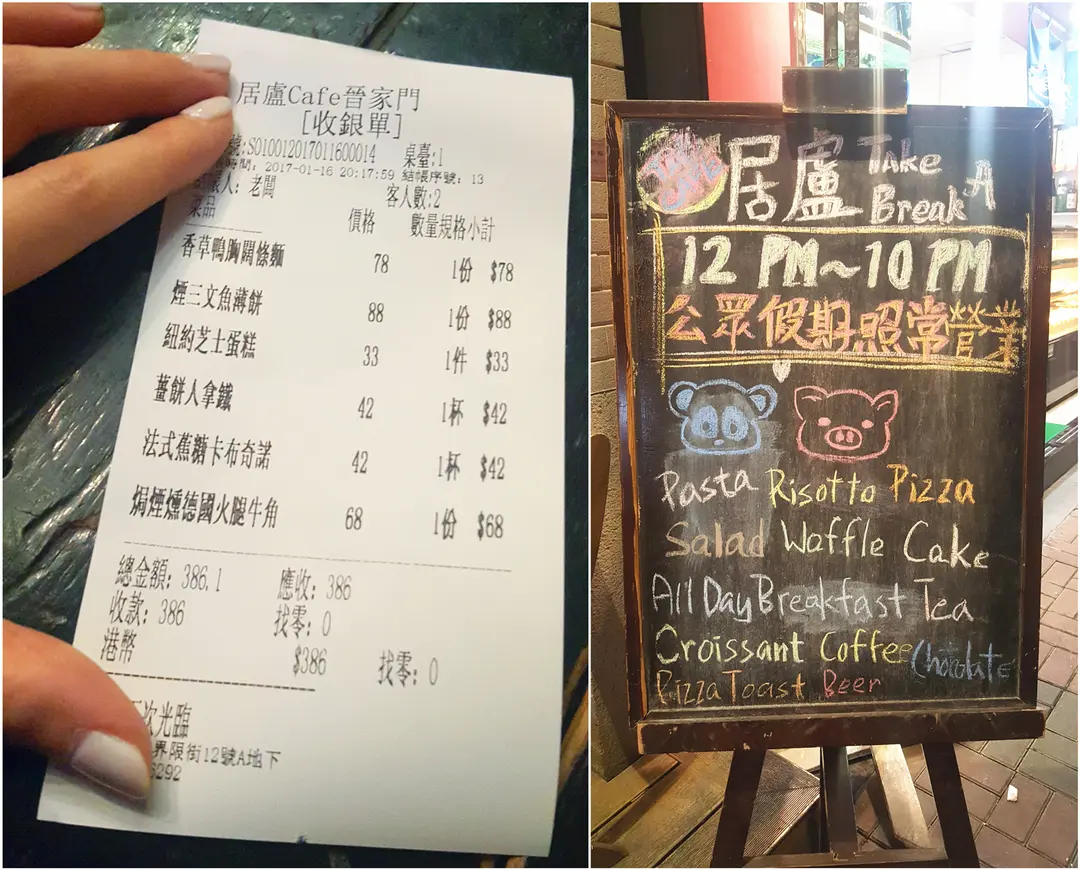 居廬Cafe晉家門
[收銀單]
:S0100120170116000​14 桌臺:1
: 2017-01-16 20:17:59 結帳序號: 13
人: 老闆 客人數:2
菜品 價格 數量規格小計
香草鴨胸闊條麵 78 1份 $78
煙三文魚薄餅 88 1份 $88
紐約芝士蛋糕 33 1件 $33
薑餅人拿鐵 42 1杯 $42
法式蕉糖卡布奇諾 42 1杯 $42
焗煙燻德國火腿牛角 68 1份 $68
總金額: 386.1 應收: 386
收款: 386 找零: 0
港幣 $386 找零: 0
次光臨
界限街12號A地下
6292
居廬 Take A Break
12 PM~10 PM
公眾假期照常營業
Pasta Risotto Pizza
Salad Waffle Cake
All Day Breakfast Tea
Croissant Coffee Chocolate
Pizza Toast Beer